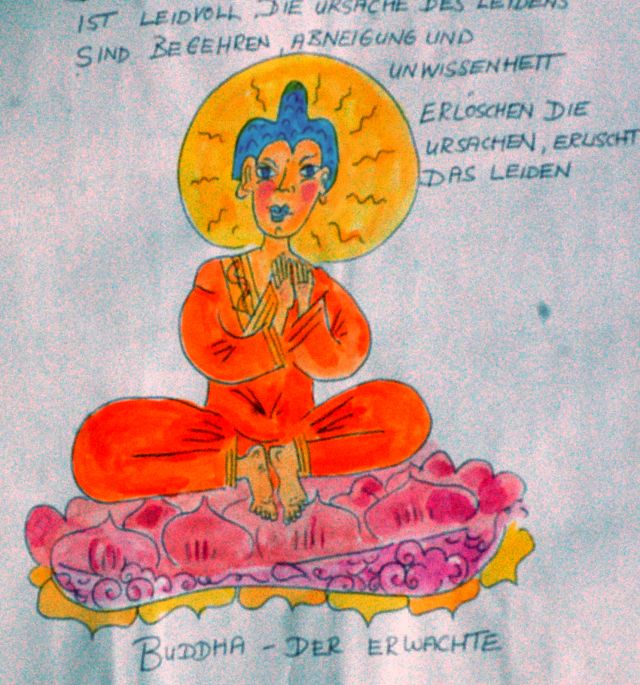 IST LEIDVOLL. DIE URSACHE DES LEIDENS
SIND BEGEHREN, ABNEIGUNG UND
UNWISSENHEIT
ERLÖSCHEN DIE
URSACHEN, ERLISCHT
DAS LEIDEN
BUDDHA - DER ERWACHTE